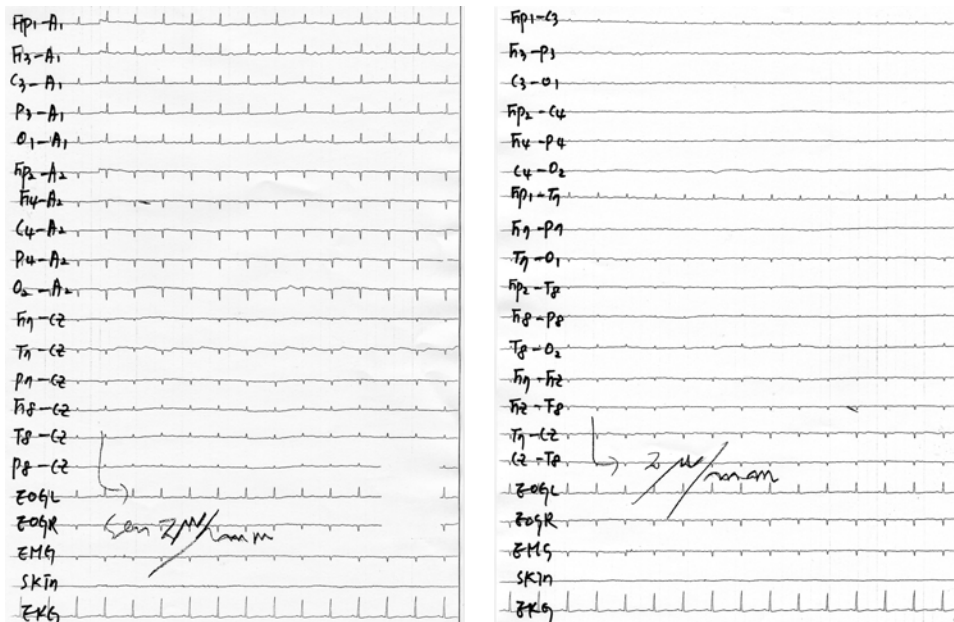 Fp1-A1
F3-A1
C3-A1
P3-A1
O1-A1
Fp2-A2
F4-A2
C4-A2
P4-A2
O2-A2
F7-CZ
T7-CZ
P7-CZ
F8-CZ
T8-CZ
P8-CZ
EOGL
EOGR
EMG
SKIN
EKG
Sen 2μV/mm
Fp1-C3
F3-P3
C3-O1
Fp2-C4
F4-P4
C4-O2
Fp1-T7
F7-P7
T7-O1
Fp2-T8
F8-P8
T8-O2
F7-FZ
FZ-F8
T7-CZ
CZ-T8
EOGL
EOGR
EMG
SKIN
EKG
2 μV/mm